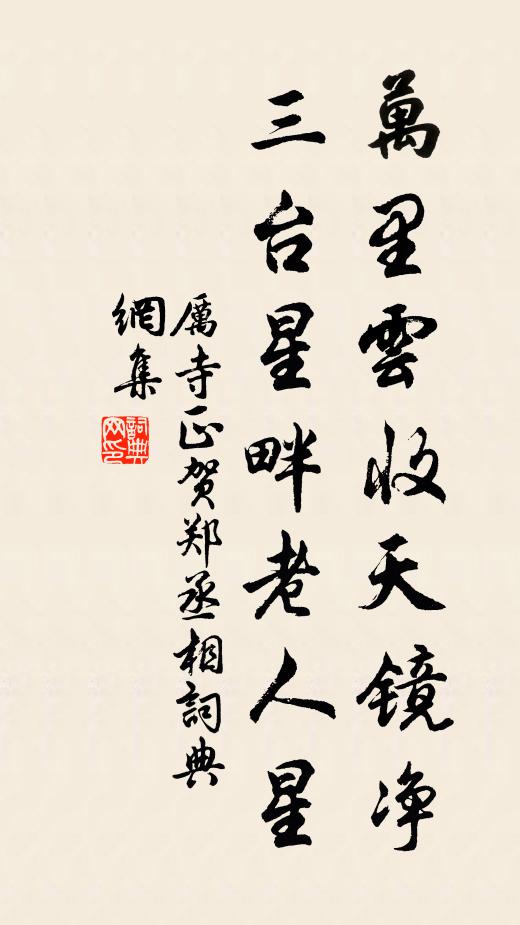 萬里雲收天镜净
三台星畔老人星
厲寺正贺郑丞相詞典
網集
詞典网印